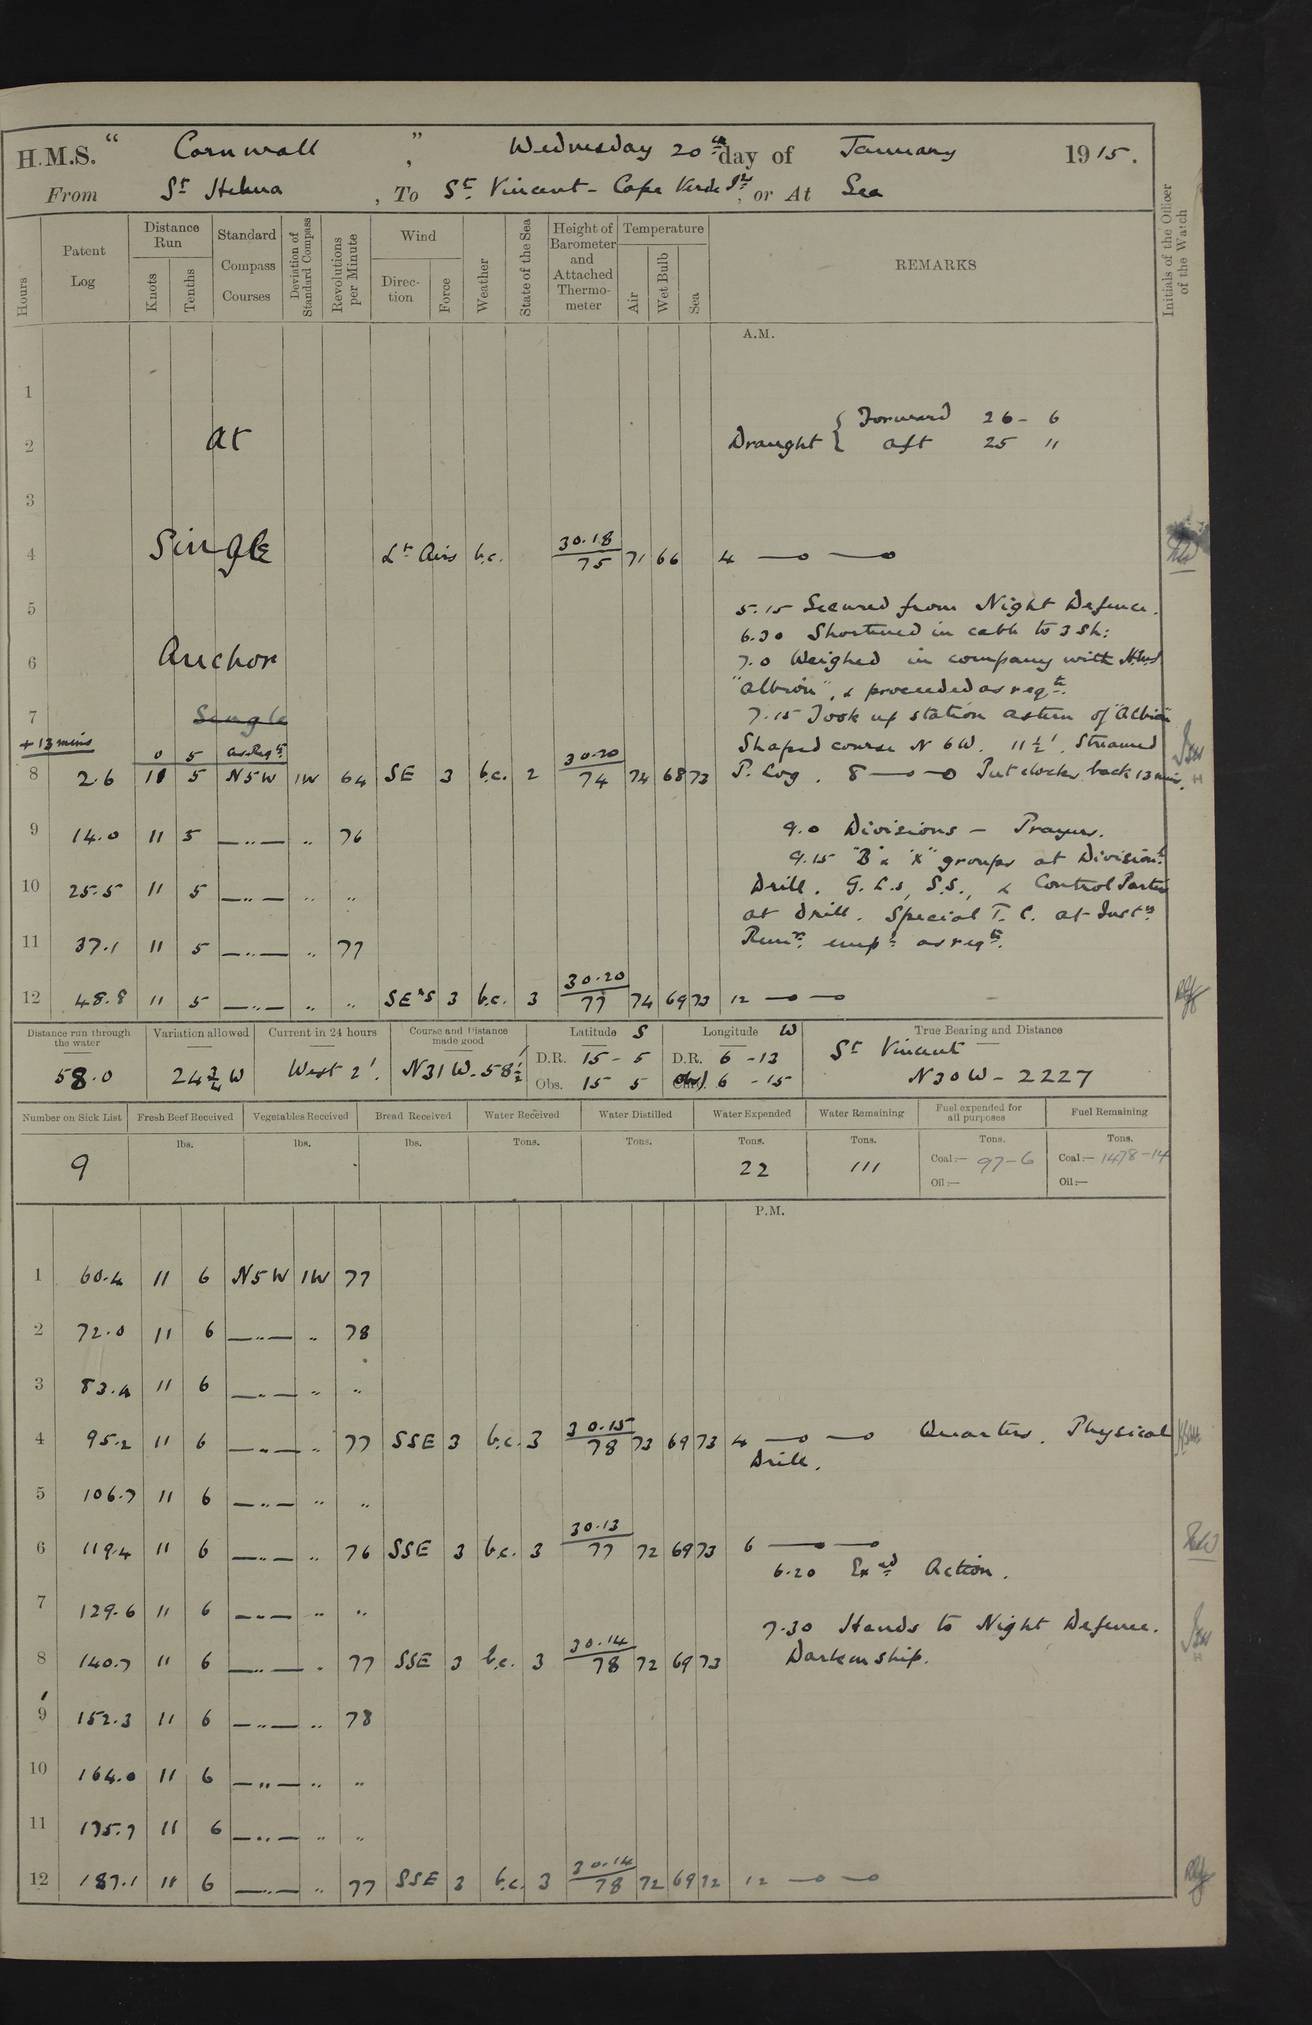 H.M.S. " Cornwall ", Wednesday 20th day of January 1915.
From St Helena, To St. Vincent - Cape Verde Is, or At Sea
Hours
Patent Log
Distance Run
Knots
Tenths
Standard Compass Courses
Deviation of Standard Compass
Revolutions per Minute
Wind
Direction
Force
Weather
State of the Sea
Height of Barometer and Attached Thermometer
Temperature
Air
Wet Bulb
Sea
REMARKS
Initials of the Officer of the Watch
A.M.
1
Draught { Forward 26 - 6
2 At aft 25 "
3
4 Single Lt Airs b.c. 30.18/75 71 66 4 —o —o
5 5.15 Secured from Night Defence.
6.30 Shortened in cable to 3 Sh:
6 Anchor 7.0 Weighed in company with H.M.S
"Albion", & proceeded as reqte.
7 Single 7.15 Took up station astern of "Albion"
+13 mins 0 5 as Reqte Shaped course N 6W. 11½'. Streamed
8 2.6 11 5 N5W 1W 64 SE 3 b.c. 2 30.20/74 74 68 73 P. Log. 8 —o —o Put clocks back 13 mins.
9 14.0 11 5 —„— „ 76 9.0 Divisions - Prayers.
9.15 "B" & "X" groups at Divisionl
10 25.5 11 5 —„— „ „ Drill. G.L.s, S.S., & Control Parties
at drill. Special T.C. at Instn
11 37.1 11 5 —„— „ 77 Remr. empd as reqte.
12 48.8 11 5 —„— „ „ SE'S 3 b.c. 3 30.20/77 74 69 73 12 —o —o
Distance run through the water
58.0
Variation allowed
24¾ W
Current in 24 hours
West 2'.
Course and Distance made good
N31W - 58½'
Latitude S
D.R. 15 - 5
Obs. 15 5
Longitude W
D.R. 6 - 13
Obs) 6 - 15
True Bearing and Distance
St Vincent
N30W - 2227
Number on Sick List
9
Fresh Beef Received
lbs.
Vegetables Received
lbs.
Bread Received
lbs.
Water Received
Tons.
Water Distilled
Tons.
Water Expended
Tons.
22
Water Remaining
Tons.
111
Fuel expended for all purposes
Tons.
Coal:— 97-6
Oil:—
Fuel Remaining
Tons.
Coal:— 1478-14
Oil:—
P.M.
1 60.4 11 6 N5W 1W 77
2 72.0 11 6 —„— „ 78
3 83.4 11 6 —„— „ „
4 95.2 11 6 —„— „ 77 SSE 3 b.c. 3 30.15/78 73 69 73 4 —o —o Quarters. Physical
Drill.
5 106.7 11 6 —„— „ „
6 119.4 11 6 —„— „ 76 SSE 3 b.c. 3 30.13/77 72 69 73 6 —o —o
6.20 Exed Action.
7 129.6 11 6 —„— „ „ 7.30 Hands to Night Defence.
8 140.7 11 6 —„— „ 77 SSE 3 b.c. 3 30.14/78 72 69 73 Darken ship.
9 152.3 11 6 —„— „ 78
10 164.0 11 6 —„— „ „
11 175.7 11 6 —„— „ „
12 187.1 11 6 —„— „ 77 SSE 3 b.c. 3 30.14/78 72 69 72 12 —o —o